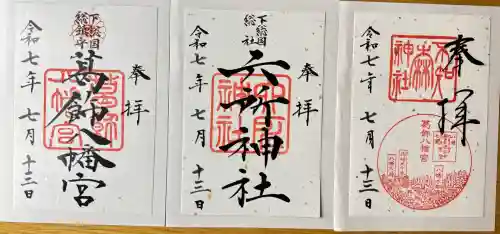 奉拝
下総国
総鎮守
葛飾八幡宮
令和七年 七月 十三日
奉拝
下総国
総社
六所神社
令和七年 七月 十三日
奉拝
不知森神社
葛飾八幡宮
令和七年 七月 十三日